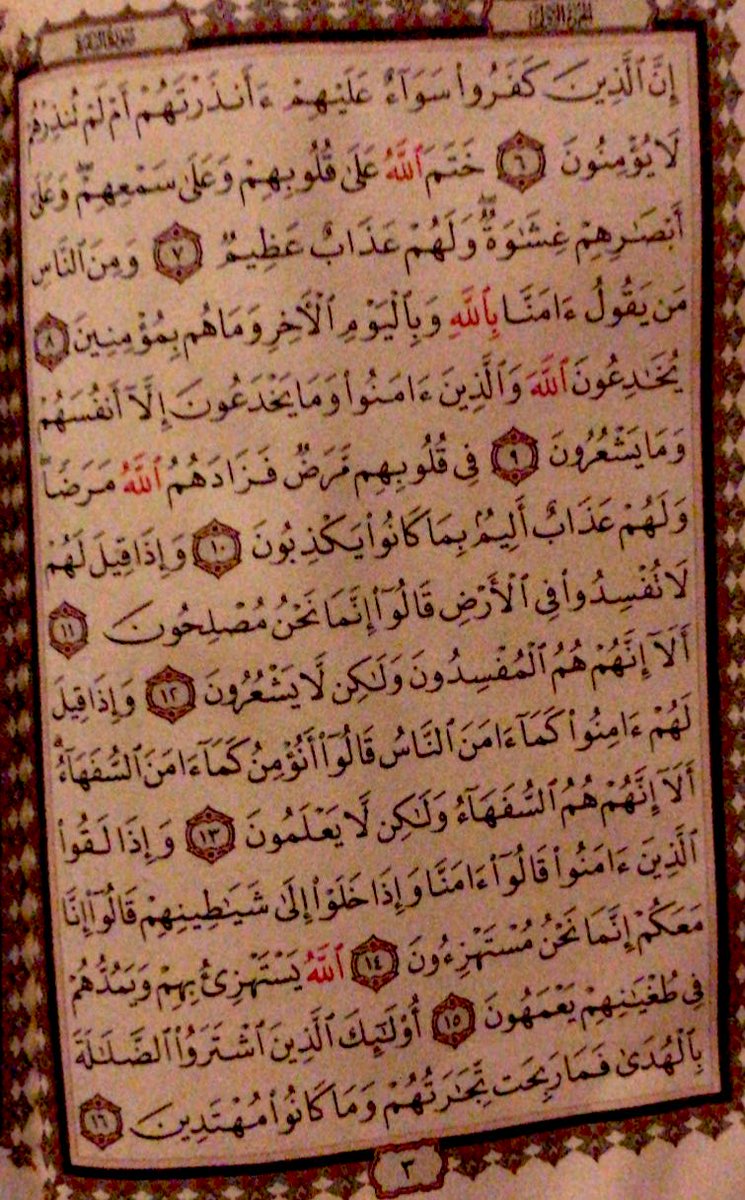 سورة البقرة
الجزء الأول
إِنَّ ٱلَّذِينَ كَفَرُواْ سَوَآءٌ عَلَيْهِمْ ءَأَنذَرْتَهُمْ أَمْ لَمْ تُنذِرْهُمْ
لَا يُؤْمِنُونَ ٦ خَتَمَ ٱللَّهُ عَلَىٰ قُلُوبِهِمْ وَعَلَىٰ سَمْعِهِمْۖ وَعَلَىٰٓ
أَبْصَٰرِهِمْ غِشَٰوَةٌۖ وَلَهُمْ عَذَابٌ عَظِيمٌ ٧ وَمِنَ ٱلنَّاسِ
مَن يَقُولُ ءَامَنَّا بِٱللَّهِ وَبِٱلْيَوْمِ ٱلْأَخِرِ وَمَا هُم بِمُؤْمِنِينَ ٨
يُخَٰدِعُونَ ٱللَّهَ وَٱلَّذِينَ ءَامَنُواْ وَمَا يَخْدَعُونَ إِلَّآ أَنفُسَهُمْ
وَمَا يَشْعُرُونَ ٩ فِى قُلُوبِهِم مَّرَضٌ فَزَادَهُمُ ٱللَّهُ مَرَضًاۖ
وَلَهُمْ عَذَابٌ أَلِيمٌۢ بِمَا كَانُواْ يَكْذِبُونَ ١٠ وَإِذَا قِيلَ لَهُمْ
لَا تُفْسِدُواْ فِى ٱلْأَرْضِ قَالُوٓاْ إِنَّمَا نَحْنُ مُصْلِحُونَ ١١
أَلَآ إِنَّهُمْ هُمُ ٱلْمُفْسِدُونَ وَلَٰكِن لَّا يَشْعُرُونَ ١٢ وَإِذَا قِيلَ
لَهُمْ ءَامِنُواْ كَمَآ ءَامَنَ ٱلنَّاسُ قَالُوٓاْ أَنُؤْمِنُ كَمَآ ءَامَنَ ٱلسُّفَهَآءُۗ
أَلَآ إِنَّهُمْ هُمُ ٱلسُّفَهَآءُ وَلَٰكِن لَّا يَعْلَمُونَ ١٣ وَإِذَا لَقُواْ
ٱلَّذِينَ ءَامَنُواْ قَالُوٓاْ ءَامَنَّا وَإِذَا خَلَوْاْ إِلَىٰ شَيَٰطِينِهِمْ قَالُوٓاْ إِنَّا
مَعَكُمْ إِنَّمَا نَحْنُ مُسْتَهْزِءُونَ ١٤ ٱللَّهُ يَسْتَهْزِئُ بِهِمْ وَيَمُدُّهُمْ
فِى طُغْيَٰنِهِمْ يَعْمَهُونَ ١٥ أُوْلَٰٓئِكَ ٱلَّذِينَ ٱشْتَرَوُاْ ٱلضَّلَٰلَةَ
بِٱلْهُدَىٰ فَمَا رَبِحَت تِّجَٰرَتُهُمْ وَمَا كَانُواْ مُهْتَدِينَ ١٦
٣